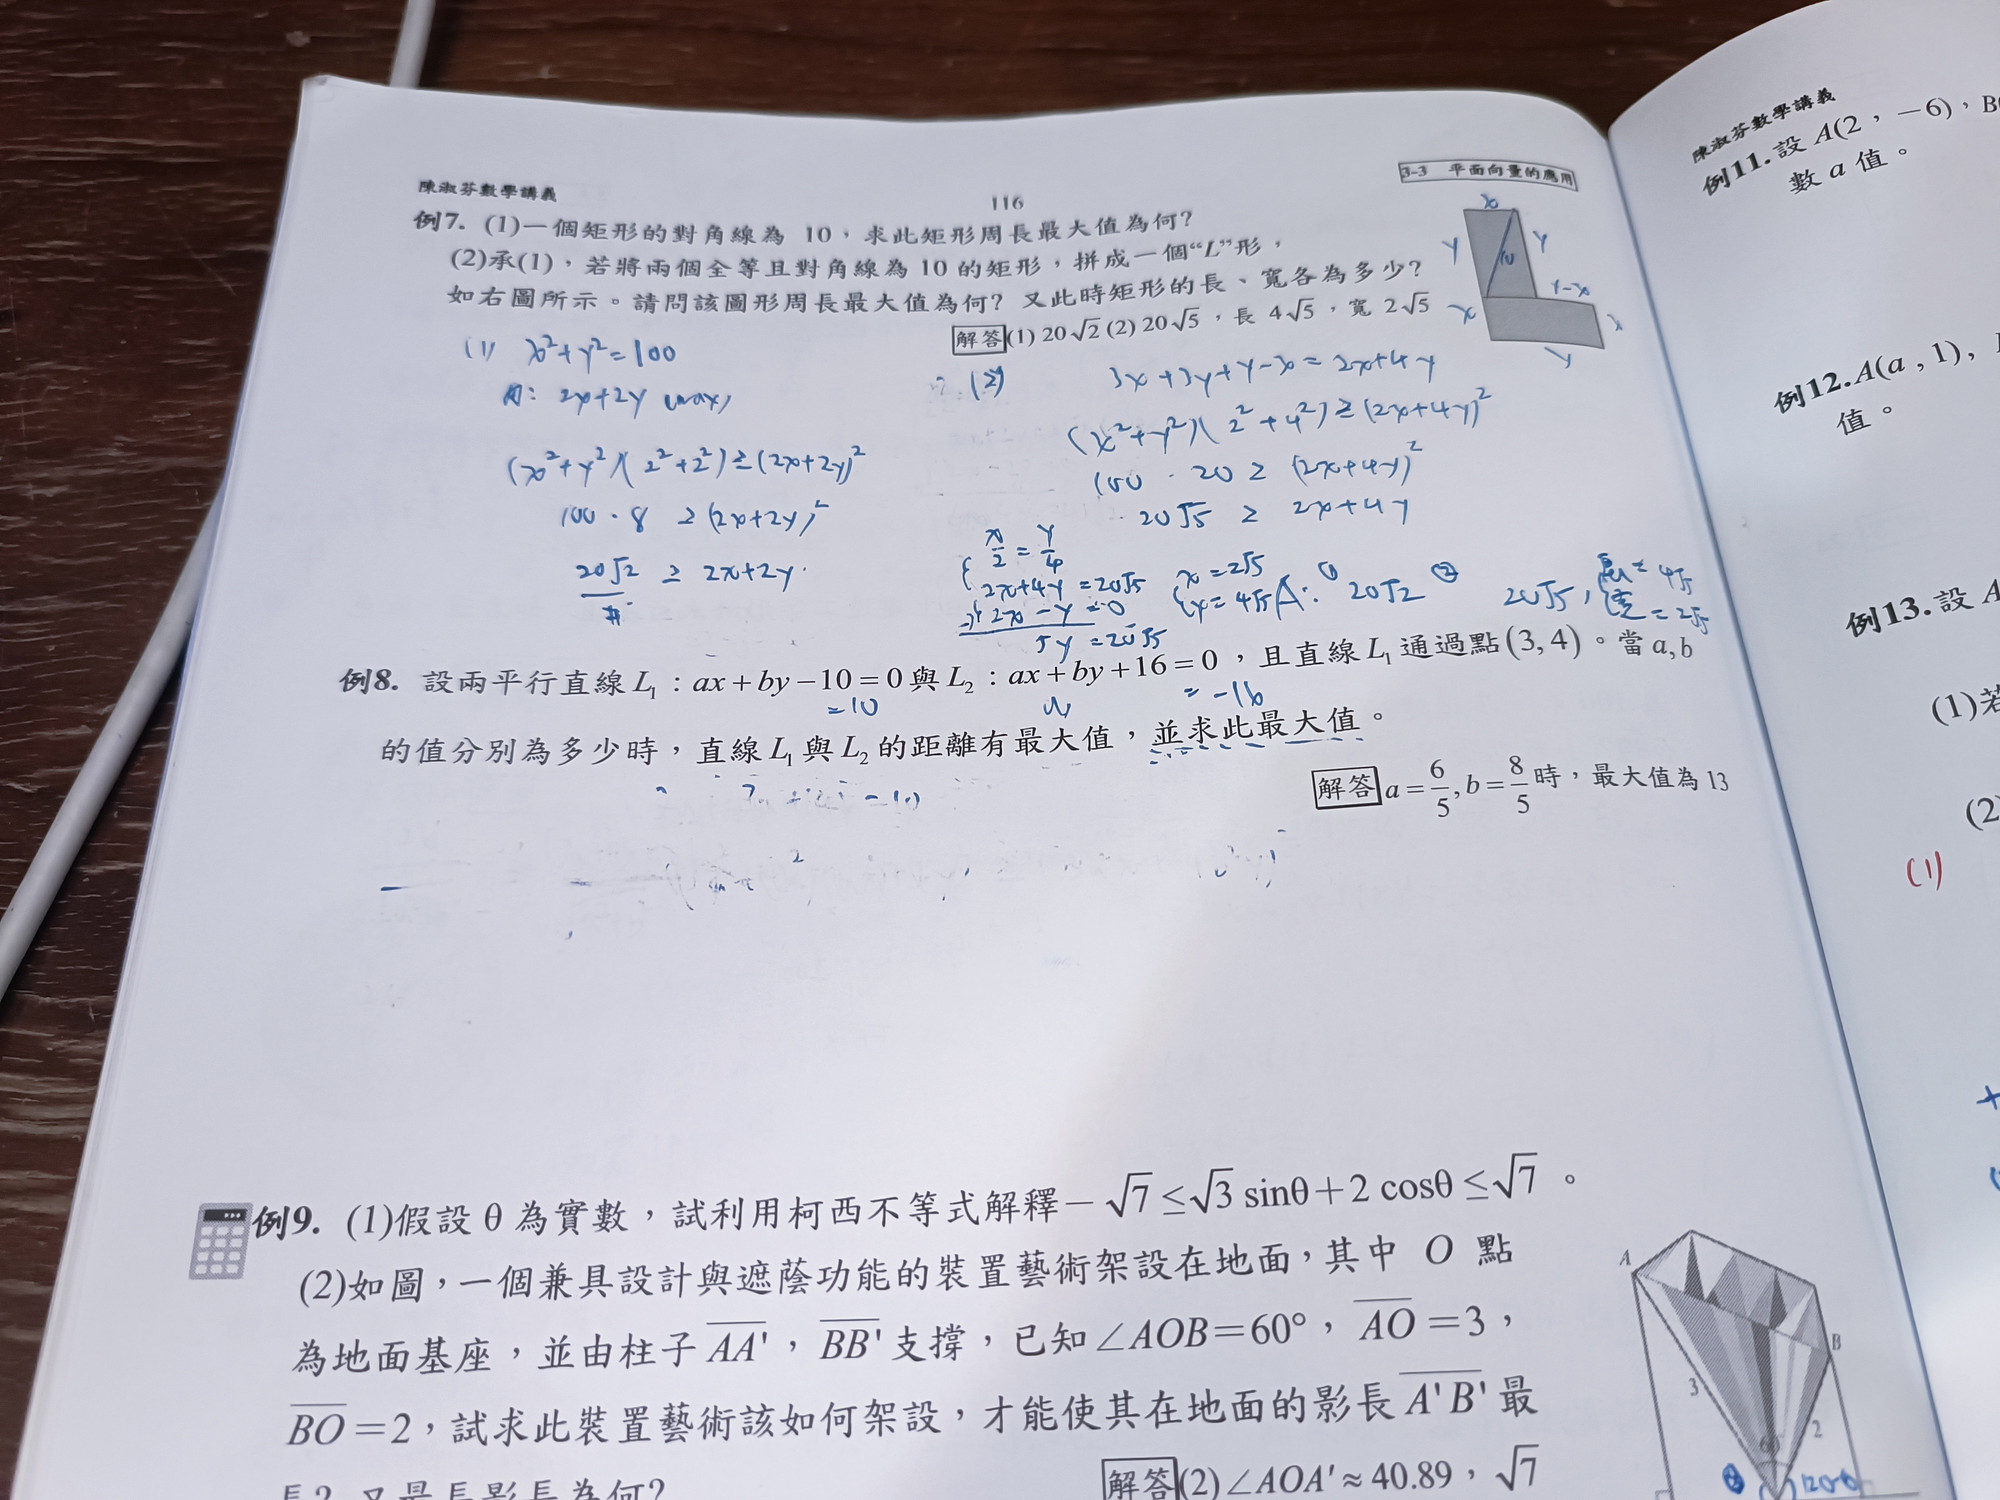 陳淑芬數學講義
116
3-3 平面向量的應用
例7. (1)一個矩形的對角線為 10,求此矩形周長最大值為何?
(2)承(1),若將兩個全等且對角線為 10 的矩形,拼成一個“L”形,
如右圖所示。請問該圖形周長最大值為何? 又此時矩形的長、寬各為多少?
解答(1) 20√2 (2) 20√5,長 4√5,寬 2√5
x
y
y
10
y-x
x
x
y
(1) x²+y²=100
求: 2x+2y (max)
(x²+y²)(2²+2²)≥(2x+2y)²
100·8 ≥(2x+2y)²
20√2 ≥ 2x+2y
#
(2) 3x+3y+y-x=2x+4y
(x²+y²)(2²+4²)≥(2x+4y)²
100·20≥(2x+4y)²
20√5 ≥ 2x+4y
x/2 = y/4
2x+4y=20√5
2x-y=0
5y=20√5
x=2√5
y=4√5
A: ① 20√2 ② 20√5, 長=4√5
寬=2√5
例8. 設兩平行直線 L₁:ax+by−10=0 與 L₂:ax+by+16=0,且直線 L₁ 通過點(3,4)。當 a,b
=10
=-16
的值分別為多少時,直線 L₁ 與 L₂ 的距離有最大值,並求此最大值。
解答 a=6/5, b=8/5 時,最大值為 13
例9. (1)假設 θ 為實數,試利用柯西不等式解釋−√7≤√3 sinθ+2 cosθ≤√7 。
(2)如圖,一個兼具設計與遮蔭功能的裝置藝術架設在地面,其中 O 點
為地面基座,並由柱子 AA',BB' 支撐,已知∠AOB=60°,AO=3,
BO=2,試求此裝置藝術該如何架設,才能使其在地面的影長 A'B' 最
長? 又最長影長為何?
解答(2)∠AOA'≈40.89,√7
A
B
3
2
陳淑芬數學講義
例11. 設 A(2,−6),B(
數 a 值。
例12. A(a,1),
值。
例13. 設 A
(1)若
(2)
(1)